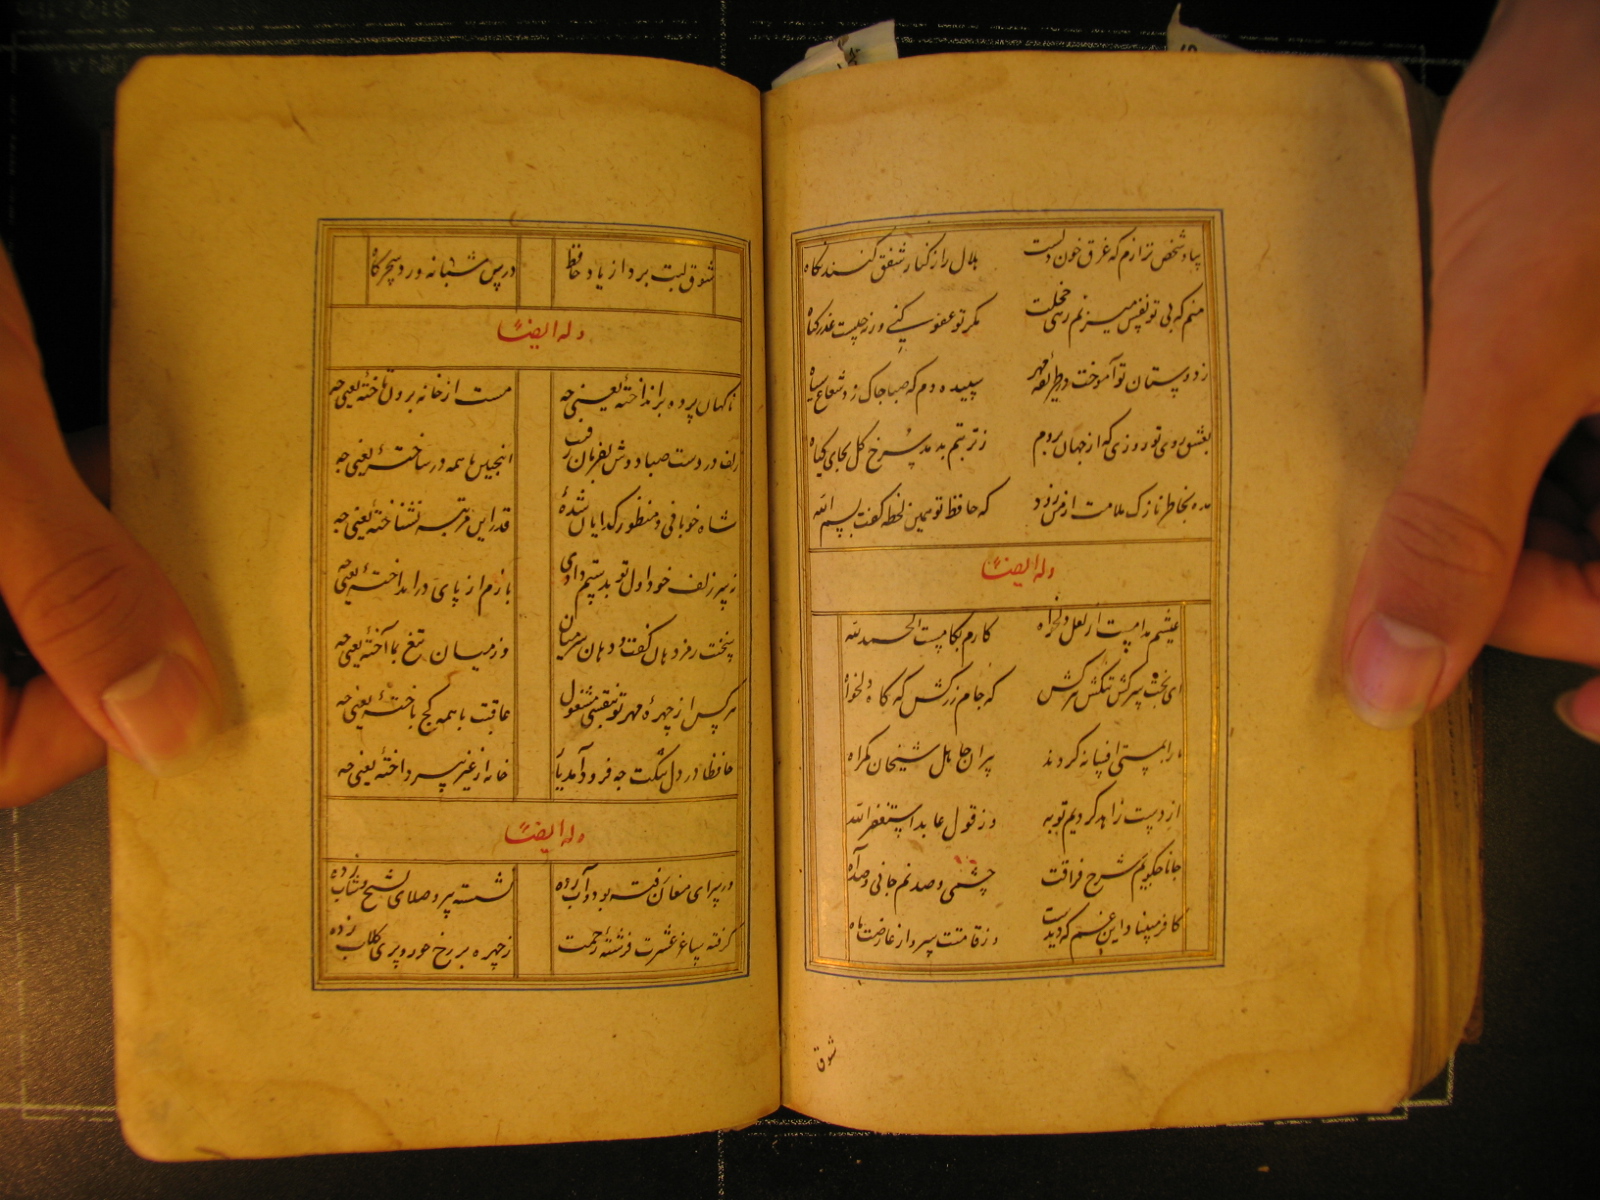 بیاد شخص نزارم که غرق خون دلست هلال را ز کنار شفق کنند نگاه
منم که بی تو نفس میزنم زهی خجلت مگر تو عفو کنی ورنه چیست عذر گناه
ز دوستان تو آموخت در طریقه مهر سپیده دم که صبا چاک زد شعاع سیاه
بعشق روی تو روزی که از جهان بروم ز تربتم بدمد سرخ گل بجای گیاه
مده بخاطر نازک ملامت از من زود که حافظ تو همین لحظه گفت بسم الله
وله ایضاً
عیشم مدامست از لعل دلخواه کارم بکامست الحمدلله
ای بخت سرکش تنگش ببرکش که جام زرکش که کاه دلخواه
ما را بمستی افسانه کردند پیران جاهل شیخان گمراه
از دست زاهد کردیم توبه وز قول عابد استغفرالله
جانا چگویم شرح فراقت چشمی و صد نم جانی و صد آه
کافر مبیناد این غم که دیدست وز قامتت سرو از عارضت ماه
شوق
شوق لبت برد از یاد حافظ درس شبانه ورد سحرگاه
وله ایضاً
ناگهان پرده برانداخته یعنی چه مست از خانه برون تاخته یعنی چه
زلف در دست صبا دوش بفرمان رقیب انچنین با همه درساخته یعنی چه
شاه خوبانی و منظور گدایان شده قدر این مرتبه نشناخته یعنی چه
نه سر زلف خود اول تو بدستم دادی بازم از پای درانداخته یعنی چه
سخنت رمز دهان گفت و دهان سر میان وز میان تیغ بما آخته یعنی چه
هر کس از چهره مهر تو بنقشی مشغول عاقبت با همه کج باخته یعنی چه
حافظا در دل تنگت چه فرود آمد یار خانه از غیر نپرداخته یعنی چه
وله ایضاً
در سرای مغان رفته بود و آب زده نشسته پیر و صلای بشیخ و شاب زده
گرفته ساغر عشرت فرشته رحمت ز چهره بر رخ حور و پری گلاب زده